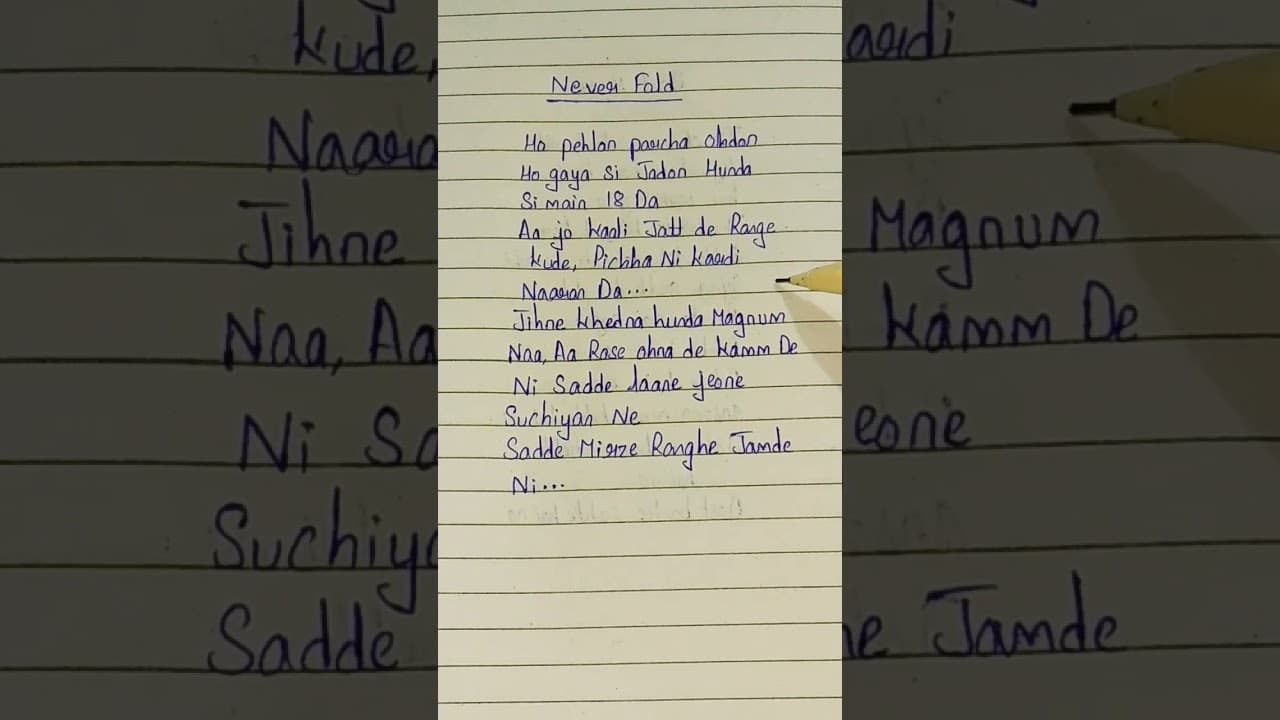 Never Fold
Ho pehlan parcha ohdon
Ho gaya si Jadon Hunda
Si main 18 Da
Aa jo kaali Jatt de Range
kude, Pichha Ni kardi
Naaran Da...
Jihne khedna hunda Magnum
Naa, Aa Rase ohna de kamm De
Ni Sadde laane jeone
Suchiyan Ne
Sadde Mirze Ranghe Jamde
Ni...